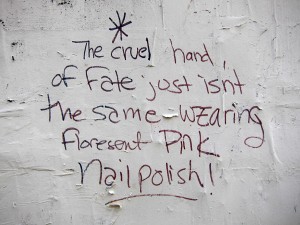 *
The cruel hand,
of Fate just isnt
the same wearing
floresent Pink
Nail polish!